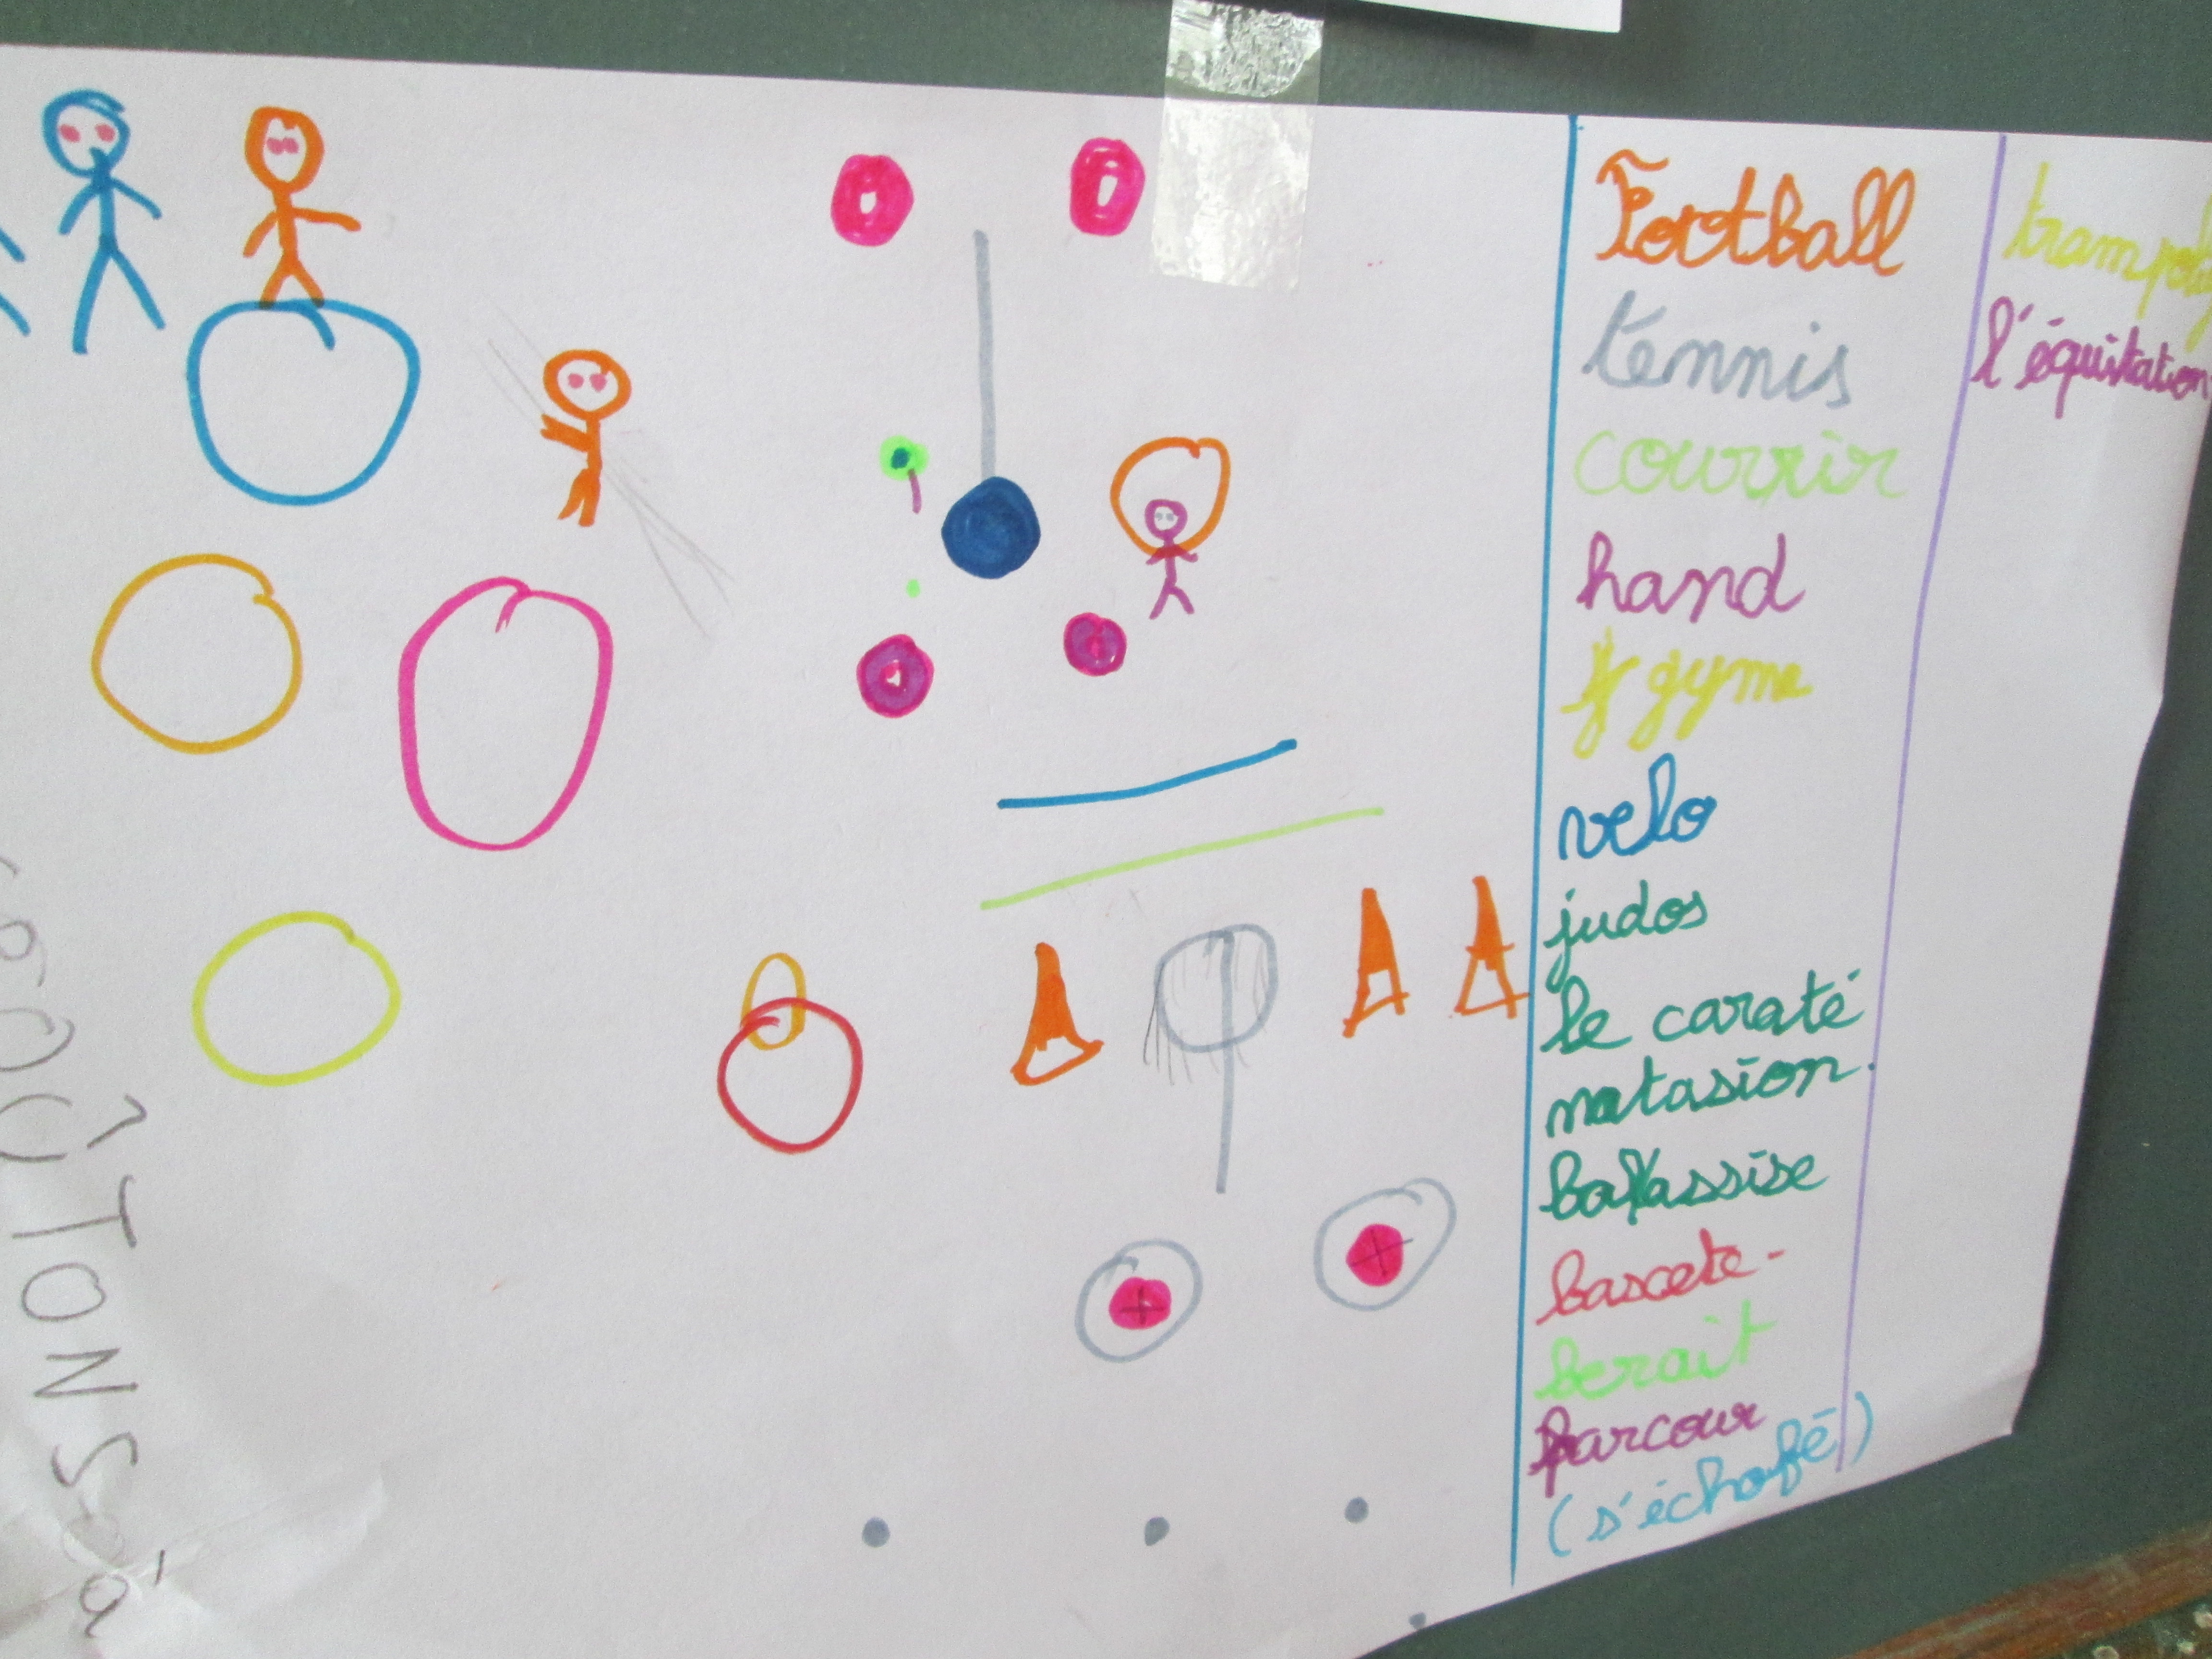 Football
tennis
courrir
hand
gyme
velo
judos
le caraté
natasion.
ballassise
bascete-
berait
parcour
(s'échofé)
l'équitation
TONS
à